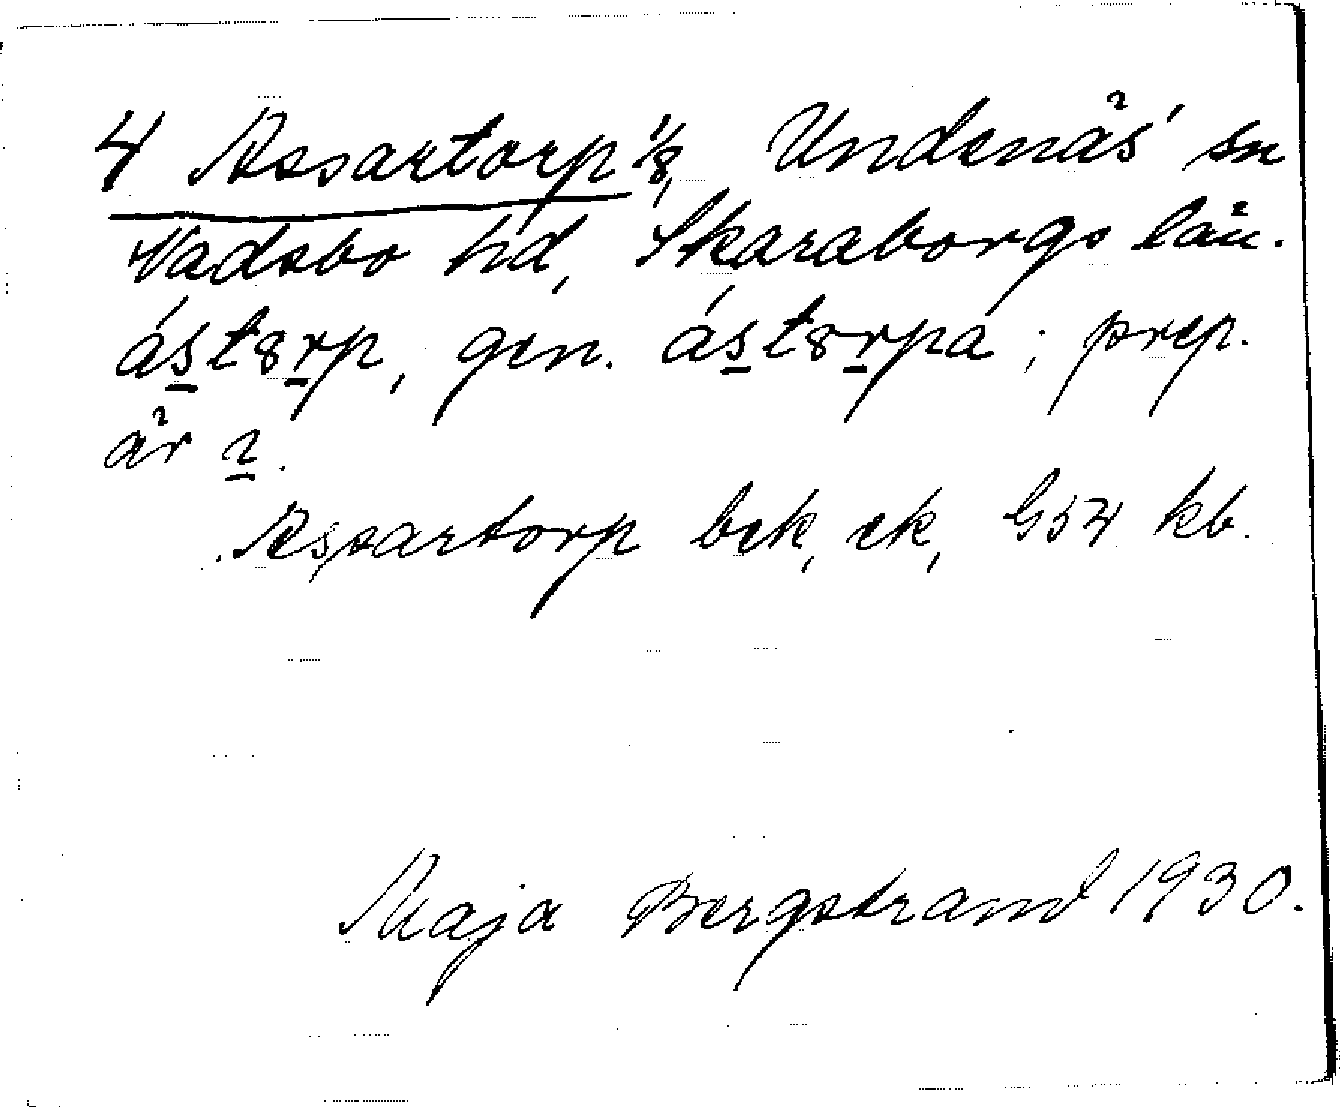 4 Assartorp 1/8, Undenäs sn
Vadsbo hd, Skaraborgs län.
ás̱t8ṟp, gen. ás̱t8ṟpa; prep.
är i̱.
Assartorp bek, ek, G54 kb.
Maja Bergstrand 1930.